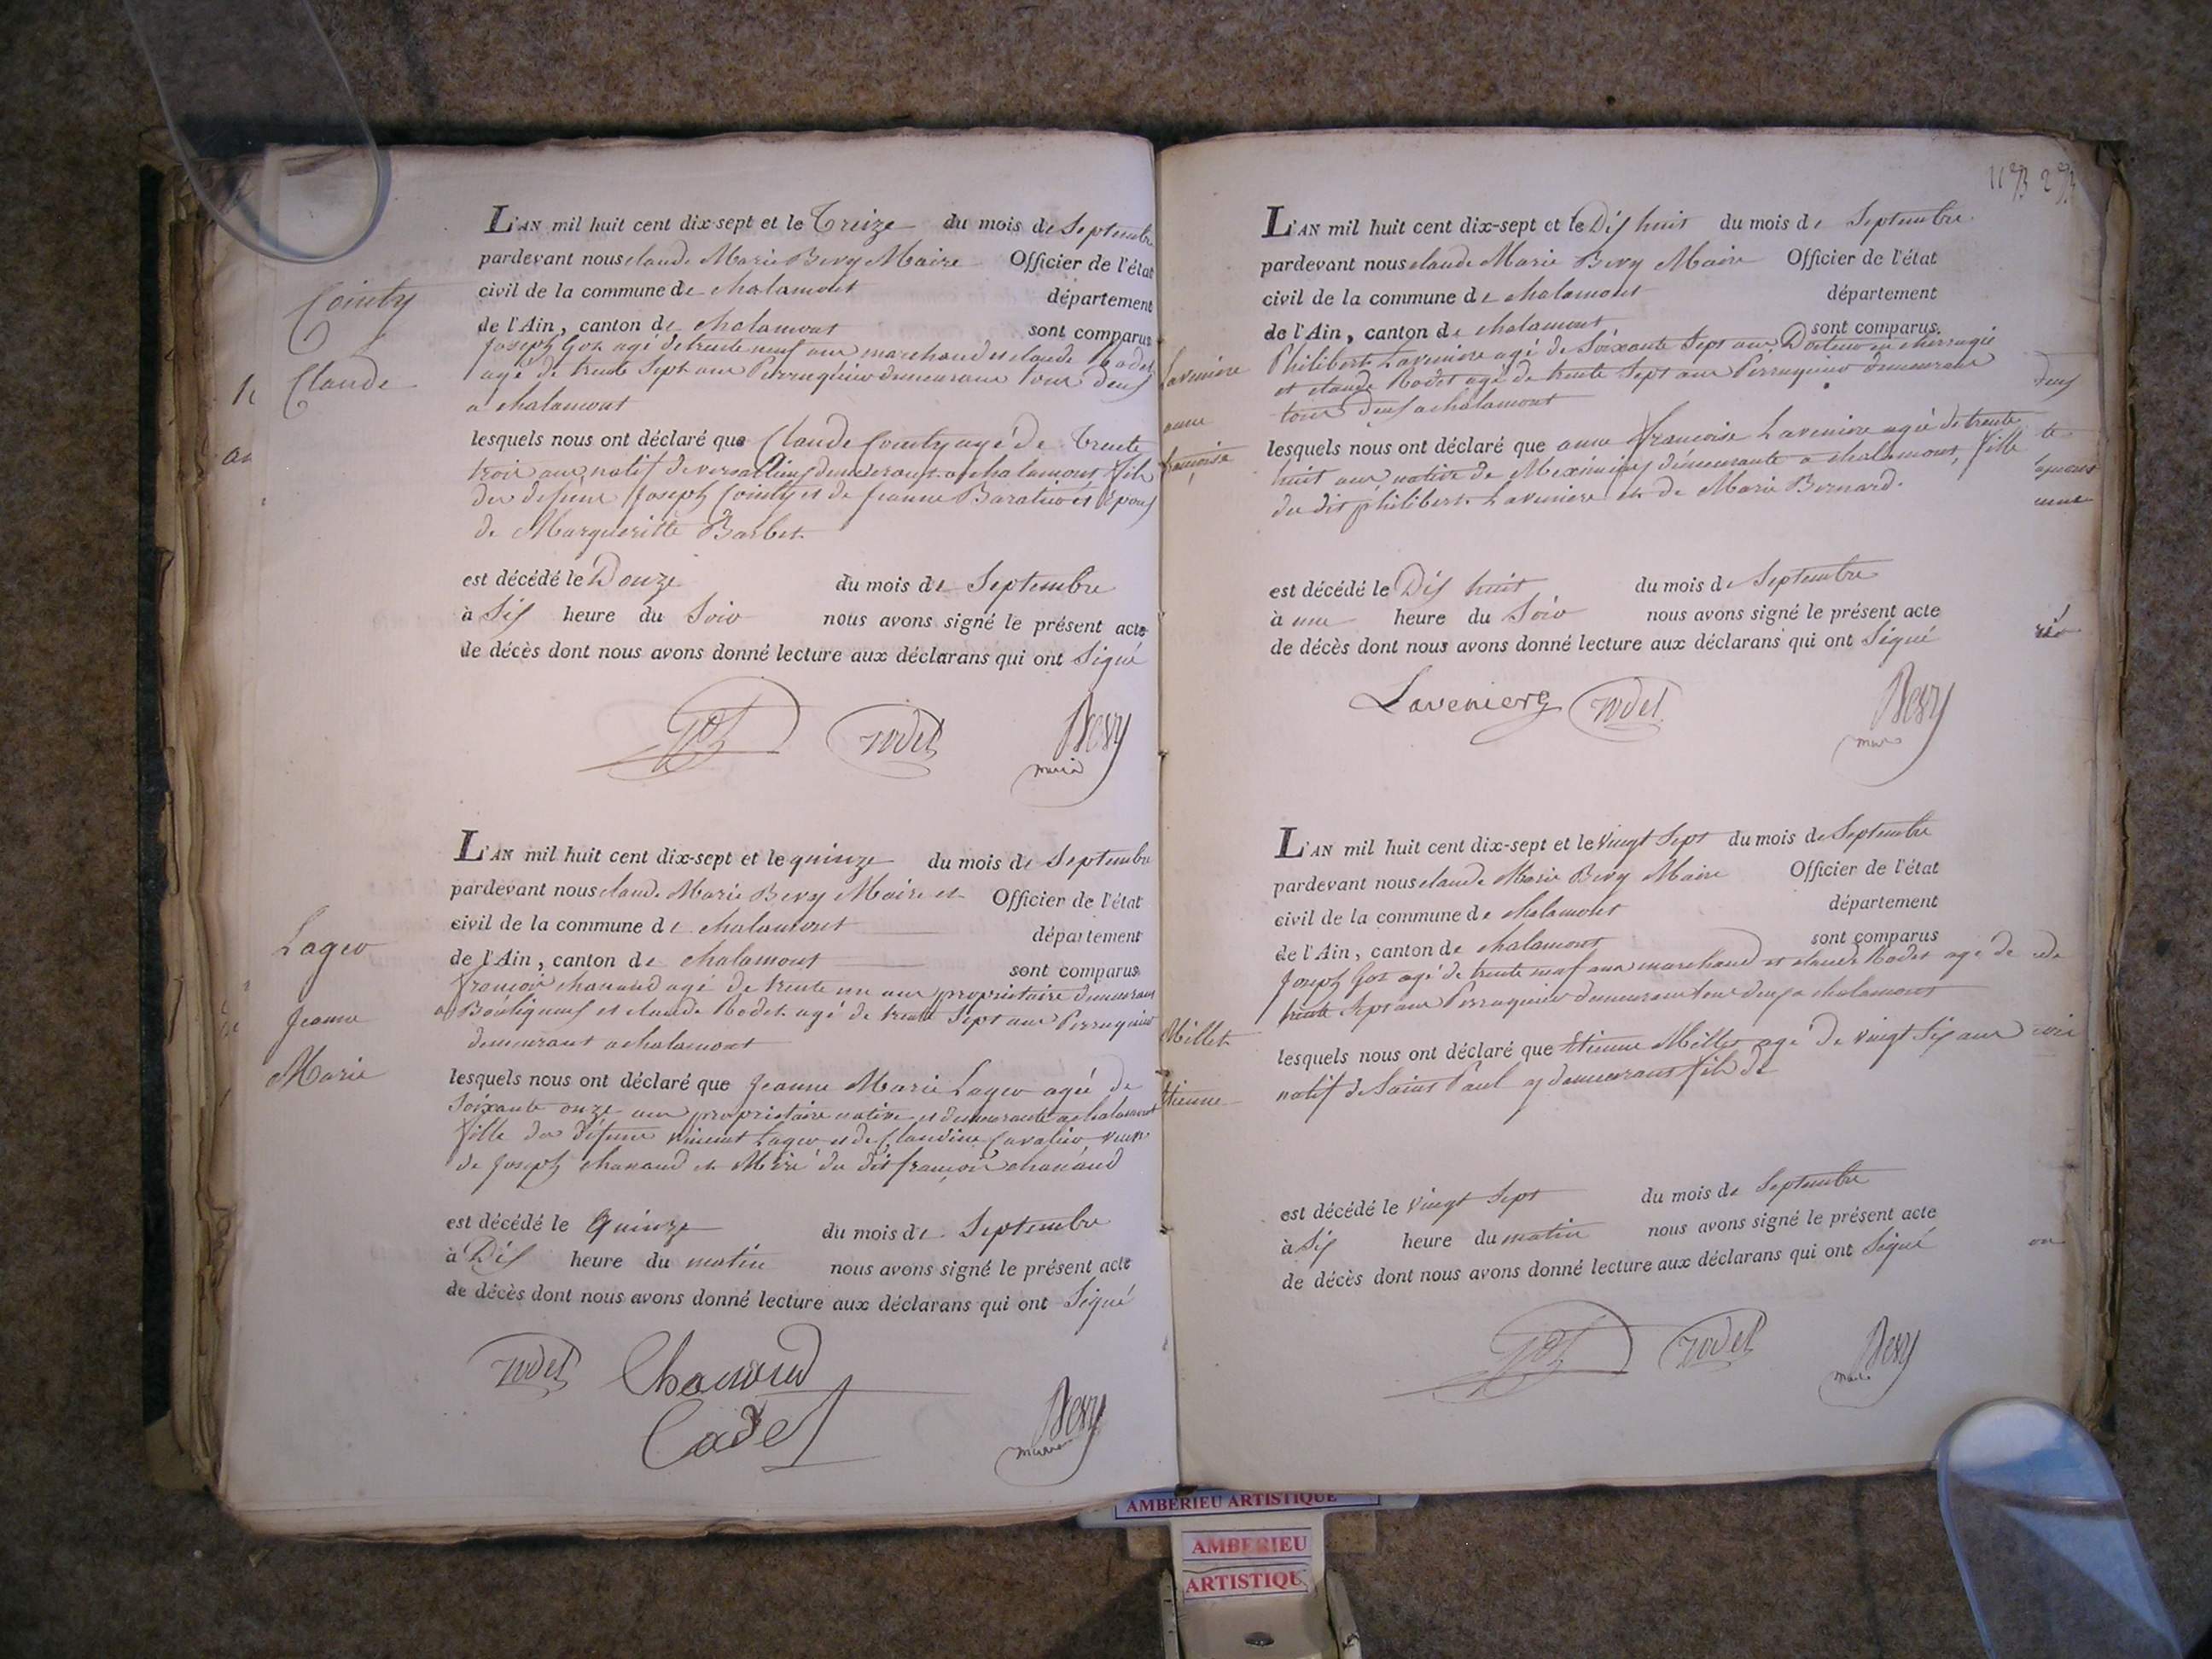 Cointy
Claude
L'AN mil huit cent dix-sept et le Treize du mois de Septembre
pardevant nous claude Marie Bevy Maire Officier de l'état
civil de la commune de chalamont département
de l'Ain, canton de chalamont sont comparus
Joseph Goz agé de trente neuf ans marchand et claude Rodet
agé de trente Sept ans Perruquier demeurant tous deux
a chalamont
lesquels nous ont déclaré que Claude Cointy agé de Trente
trois ans natif de versailleux demeurant a chalamont fils
du defunt Joseph Cointy et de Jeanne Baratier et Epoux
de Margueritte Barbet
est décédé le Douze du mois de Septembre
à Six heure du Soir nous avons signé le présent acte
de décès dont nous avons donné lecture aux déclarans qui ont Signé
Goz rodet Bevy
maire
Lager
Jeanne
Marie
L'AN mil huit cent dix-sept et le quinze du mois de Septembre
pardevant nous claude Marie Bevy Maire et Officier de l'état
civil de la commune de chalamont département
de l'Ain, canton de chalamont sont comparus
françois chanaud agé de trente un ans proprietaire demeurant
a Bouligneux et claude Rodet agé de trente Sept ans Perruquier
demeurant a chalamont
lesquels nous ont déclaré que Jeanne Marie Lager agée de
Soixante onze ans proprietaire native et demeurante a chalamont
fille du défunt vincent Lager et de Claudine Cavalier veuve
de Joseph chanaud et Mère du dit françois chanaud
est décédé le Quinze du mois de Septembre
à Dix heure du matin nous avons signé le présent acte
de décès dont nous avons donné lecture aux déclarans qui ont Signé
rodet Chanaud
Cadet Bevy
maire
Laveniere
anne
françoise
L'AN mil huit cent dix-sept et le Dix huit du mois de Septembre
pardevant nous claude Marie Bevy Maire Officier de l'état
civil de la commune de chalamont département
de l'Ain, canton de chalamont sont comparus
Philibert Laveniere agé de Soixante Sept ans Docteur en chirurgie
et claude Rodet agé de trente Sept ans Perruquier demeurant
tous deux a chalamont
lesquels nous ont déclaré que anne françoise Laveniere agée de trente
huit ans native de Meximieux demeurante a chalamont, fille
du dit philibert Laveniere et de Marie Bernard.
est décédé le Dix huit du mois de Septembre
à une heure du Soir nous avons signé le présent acte
de décès dont nous avons donné lecture aux déclarans qui ont Signé
Laveniere rodet Bevy
maire
Millet
Etienne
L'AN mil huit cent dix-sept et le vingt Sept du mois de Septembre
pardevant nous claude Marie Bevy Maire Officier de l'état
civil de la commune de chalamont département
de l'Ain, canton de chalamont sont comparus
Joseph Goz agé de trente neuf ans marchand et claude Rodet agé de
trente Sept ans Perruquier demeurant tous deux a chalamont
lesquels nous ont déclaré que Etienne Millet agé de vingt Six ans
natif de Saint Paul y demeurant fils de
est décédé le vingt Sept du mois de Septembre
à Six heure du matin nous avons signé le présent acte
de décès dont nous avons donné lecture aux déclarans qui ont Signé
Goz rodet Bevy
maire
AMBERIEU ARTISTIQUE
AMBERIEU
ARTISTIQUE